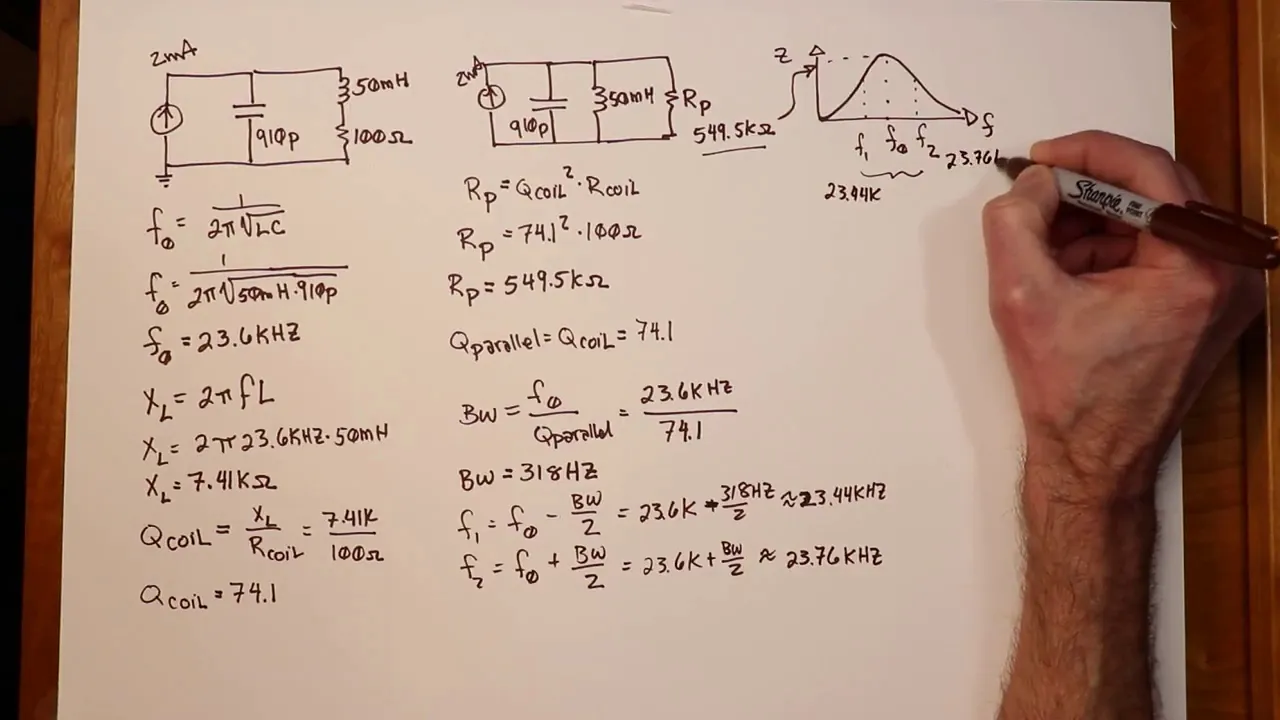 2mA
50mH
910p
100Ω
f0 = 1 / 2π√LC
f0 = 1 / 2π√50mH·910p
f0 = 23.6KHZ
XL = 2πfL
XL = 2π23.6KHZ·50mH
XL = 7.41KΩ
QCOIL = XL / RCOIL = 7.41K / 100Ω
QCOIL = 74.1
2mA
910p
50mH
Rp
549.5KΩ
Rp = QCOIL² · RCOIL
Rp = 74.1² · 100Ω
Rp = 549.5KΩ
Qparallel = QCOIL = 74.1
BW = f0 / Qparallel = 23.6KHZ / 74.1
BW = 318HZ
f1 = f0 - BW/2 = 23.6K - 318HZ/2 ≈ 23.44KHZ
f2 = f0 + BW/2 = 23.6K + BW/2 ≈ 23.76KHZ
Z
f
f1 f0 f2
23.76K
23.44K
Sharpie